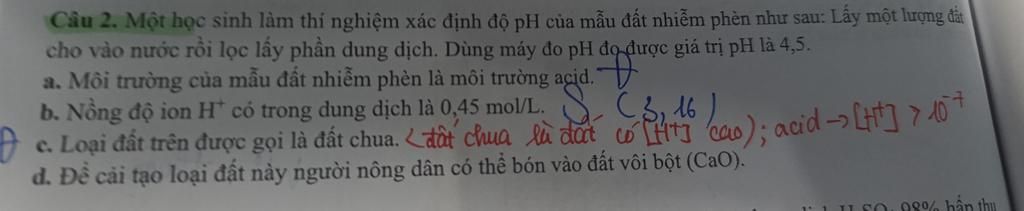 Câu 2. Một học sinh làm thí nghiệm xác định độ pH của mẫu đất nhiễm phèn như sau: Lấy một lượng đất
cho vào nước rồi lọc lấy phần dung dịch. Dùng máy đo pH đo được giá trị pH là 4,5.
a. Môi trường của mẫu đất nhiễm phèn là môi trường acid. Đ
b. Nồng độ ion H⁺ có trong dung dịch là 0,45 mol/L. S (3,16)
Đ c. Loại đất trên được gọi là đất chua. (đất chua là đất có [H⁺] cao); acid → [H⁺] > 10⁻⁷
d. Để cải tạo loại đất này người nông dân có thể bón vào đất vôi bột (CaO).
98% hấp thụ